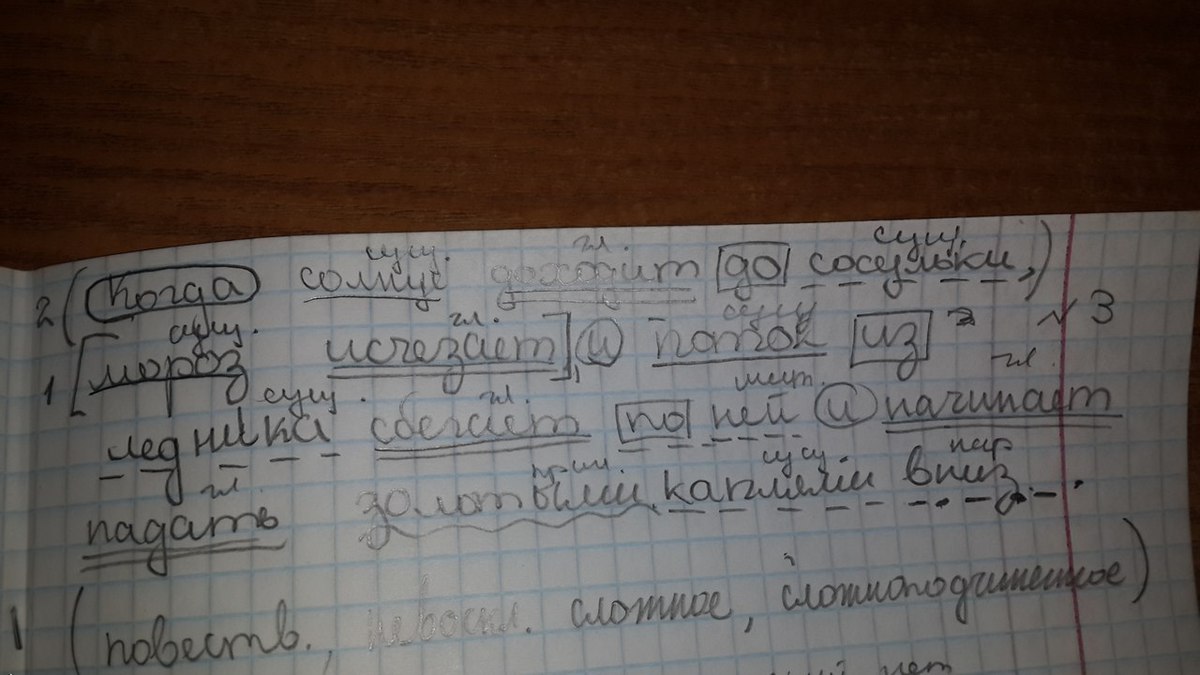 сущ. гл. сущ.
2 (Когда солнце доходит до сосульки,)
сущ. гл. сущ. √ 3
1 [мороз исчезает], и поток из
сущ. гл. мест. гл.
ледника сбегает по ней и начинает
гл. прил. сущ. нар
падать золотыми каплями вниз.
1 (повеств., невоскл. сложное, сложноподчиненное)
нет